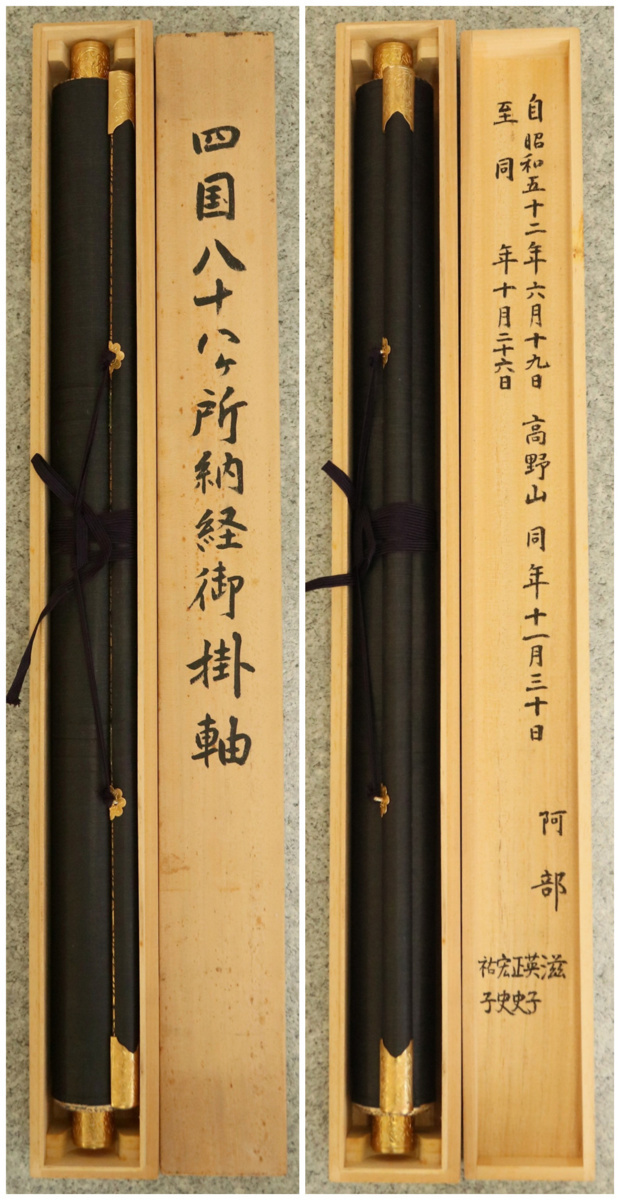 四国八十八ヶ所納経御掛軸
自昭和五十二年六月十九日 高野山 同年十一月三十日
至同年十月二十六日
阿部
滋
英子
正史
宏史
祐子